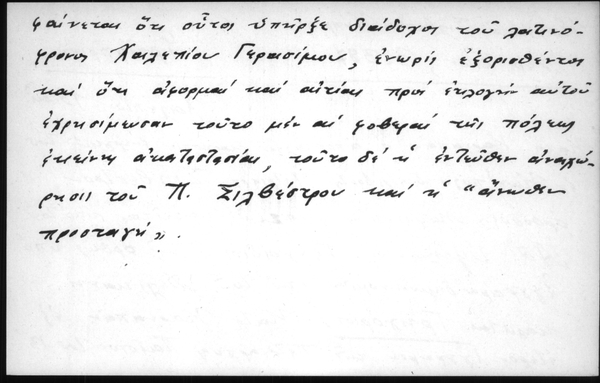 φαίνεται ὅτι οὗτος ὑπῆρξε διάδοχος τοῦ λατινό-
φρονος Χαλεπίου Γερασίμου, ἐνωρὶς ἐξορισθέντος
καὶ ὅτι ἀφορμαὶ καὶ αἰτίαι πρὸς ἐκλογὴν αὐτοῦ
ἐχρησίμευσαν τοῦτο μὲν αἱ φοβεραὶ τῆς πόλεως
ἐκείνης ἀκαταστασίαι, τοῦτο δὲ ἡ ἐντεῦθεν ἀναχώ-
ρησις τοῦ Π. Σιλβέστρου καὶ ἡ "ἄνωθεν
προσταγή».